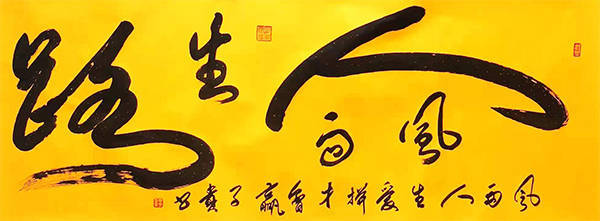 風雨人生路
风雨人生爱拼才會赢子貴书